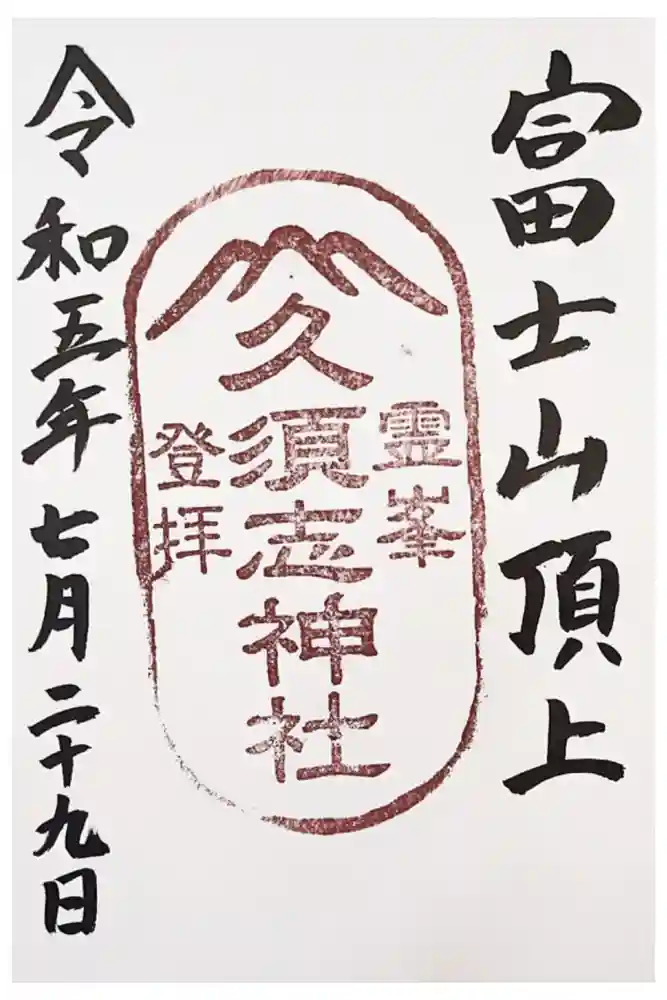 富士山頂上
霊峯
久須志神社
登拝
令和五年七月二十九日